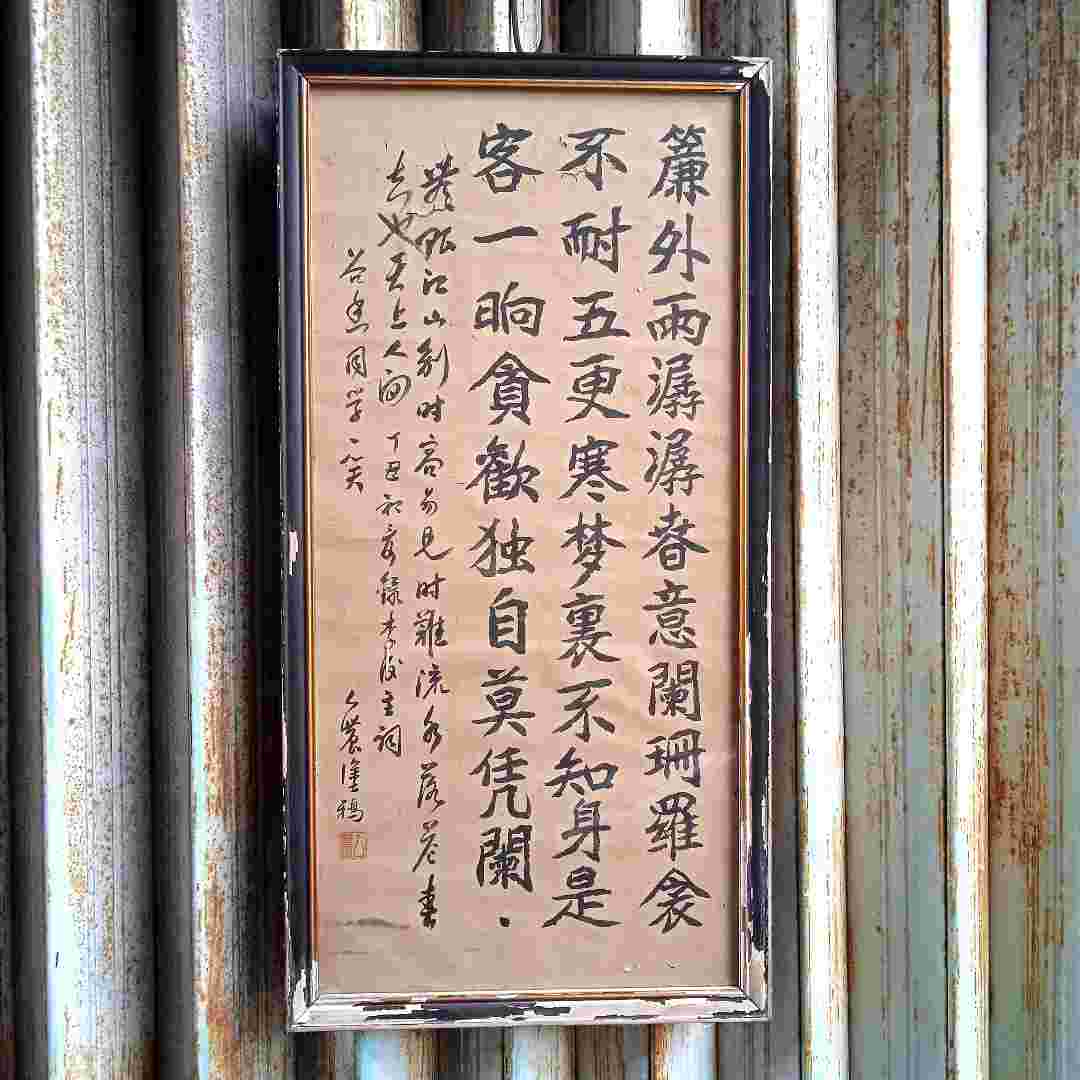 簾外雨潺潺春意闌珊羅衾
不耐五更寒梦裏不知身是
客一晌貪歡独自莫凭闌.
無限江山别时容易见时難流水落花春
去也天上人间 丁丑初夏録李後主词
同学一笑 塗鴉